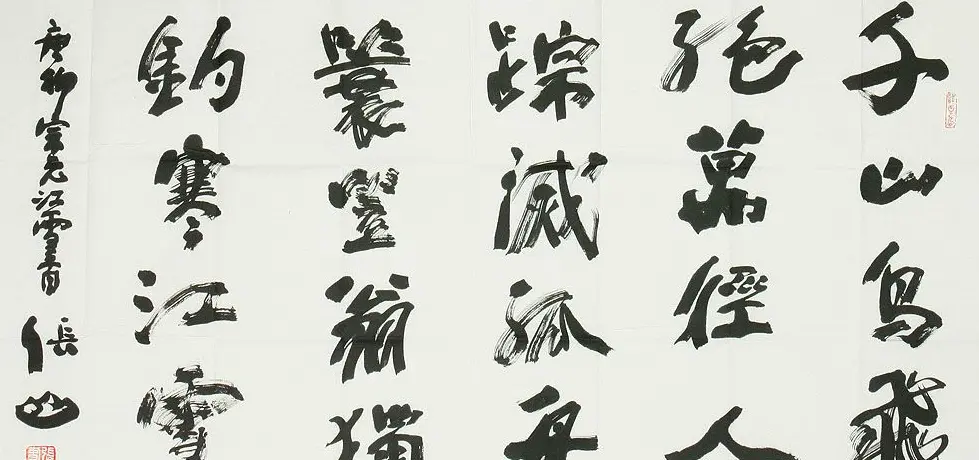 千山鳥飛
絕萬徑人
踪滅孤舟
簑笠翁獨
釣寒江雪
唐柳宗元江雪一首